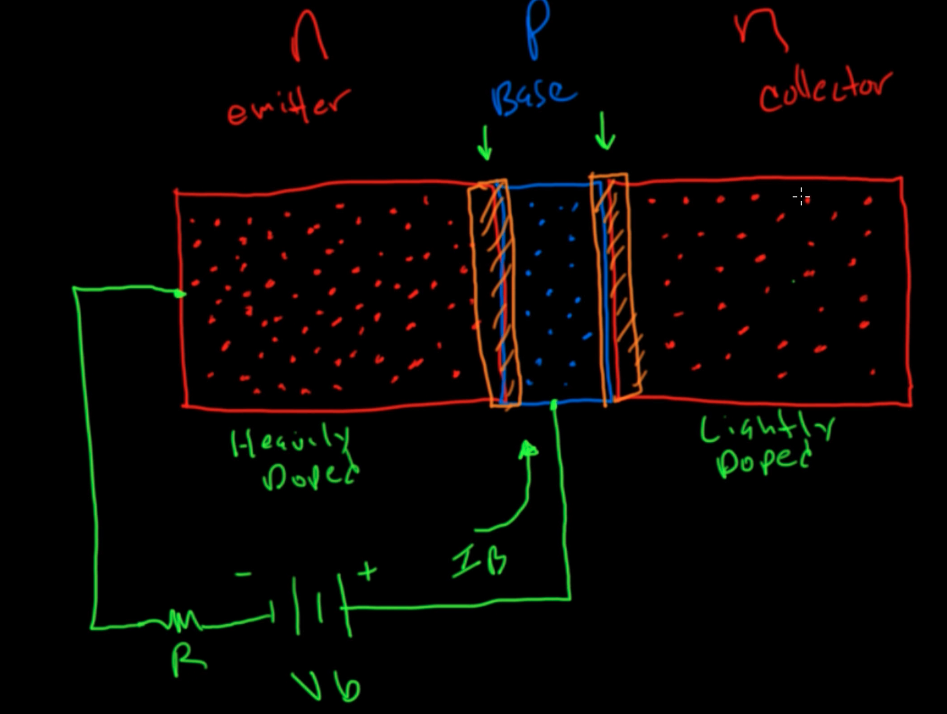 n P n
emitter Base collector
Heavily Doped
Lightly Doped
IB
- +
R
Vb